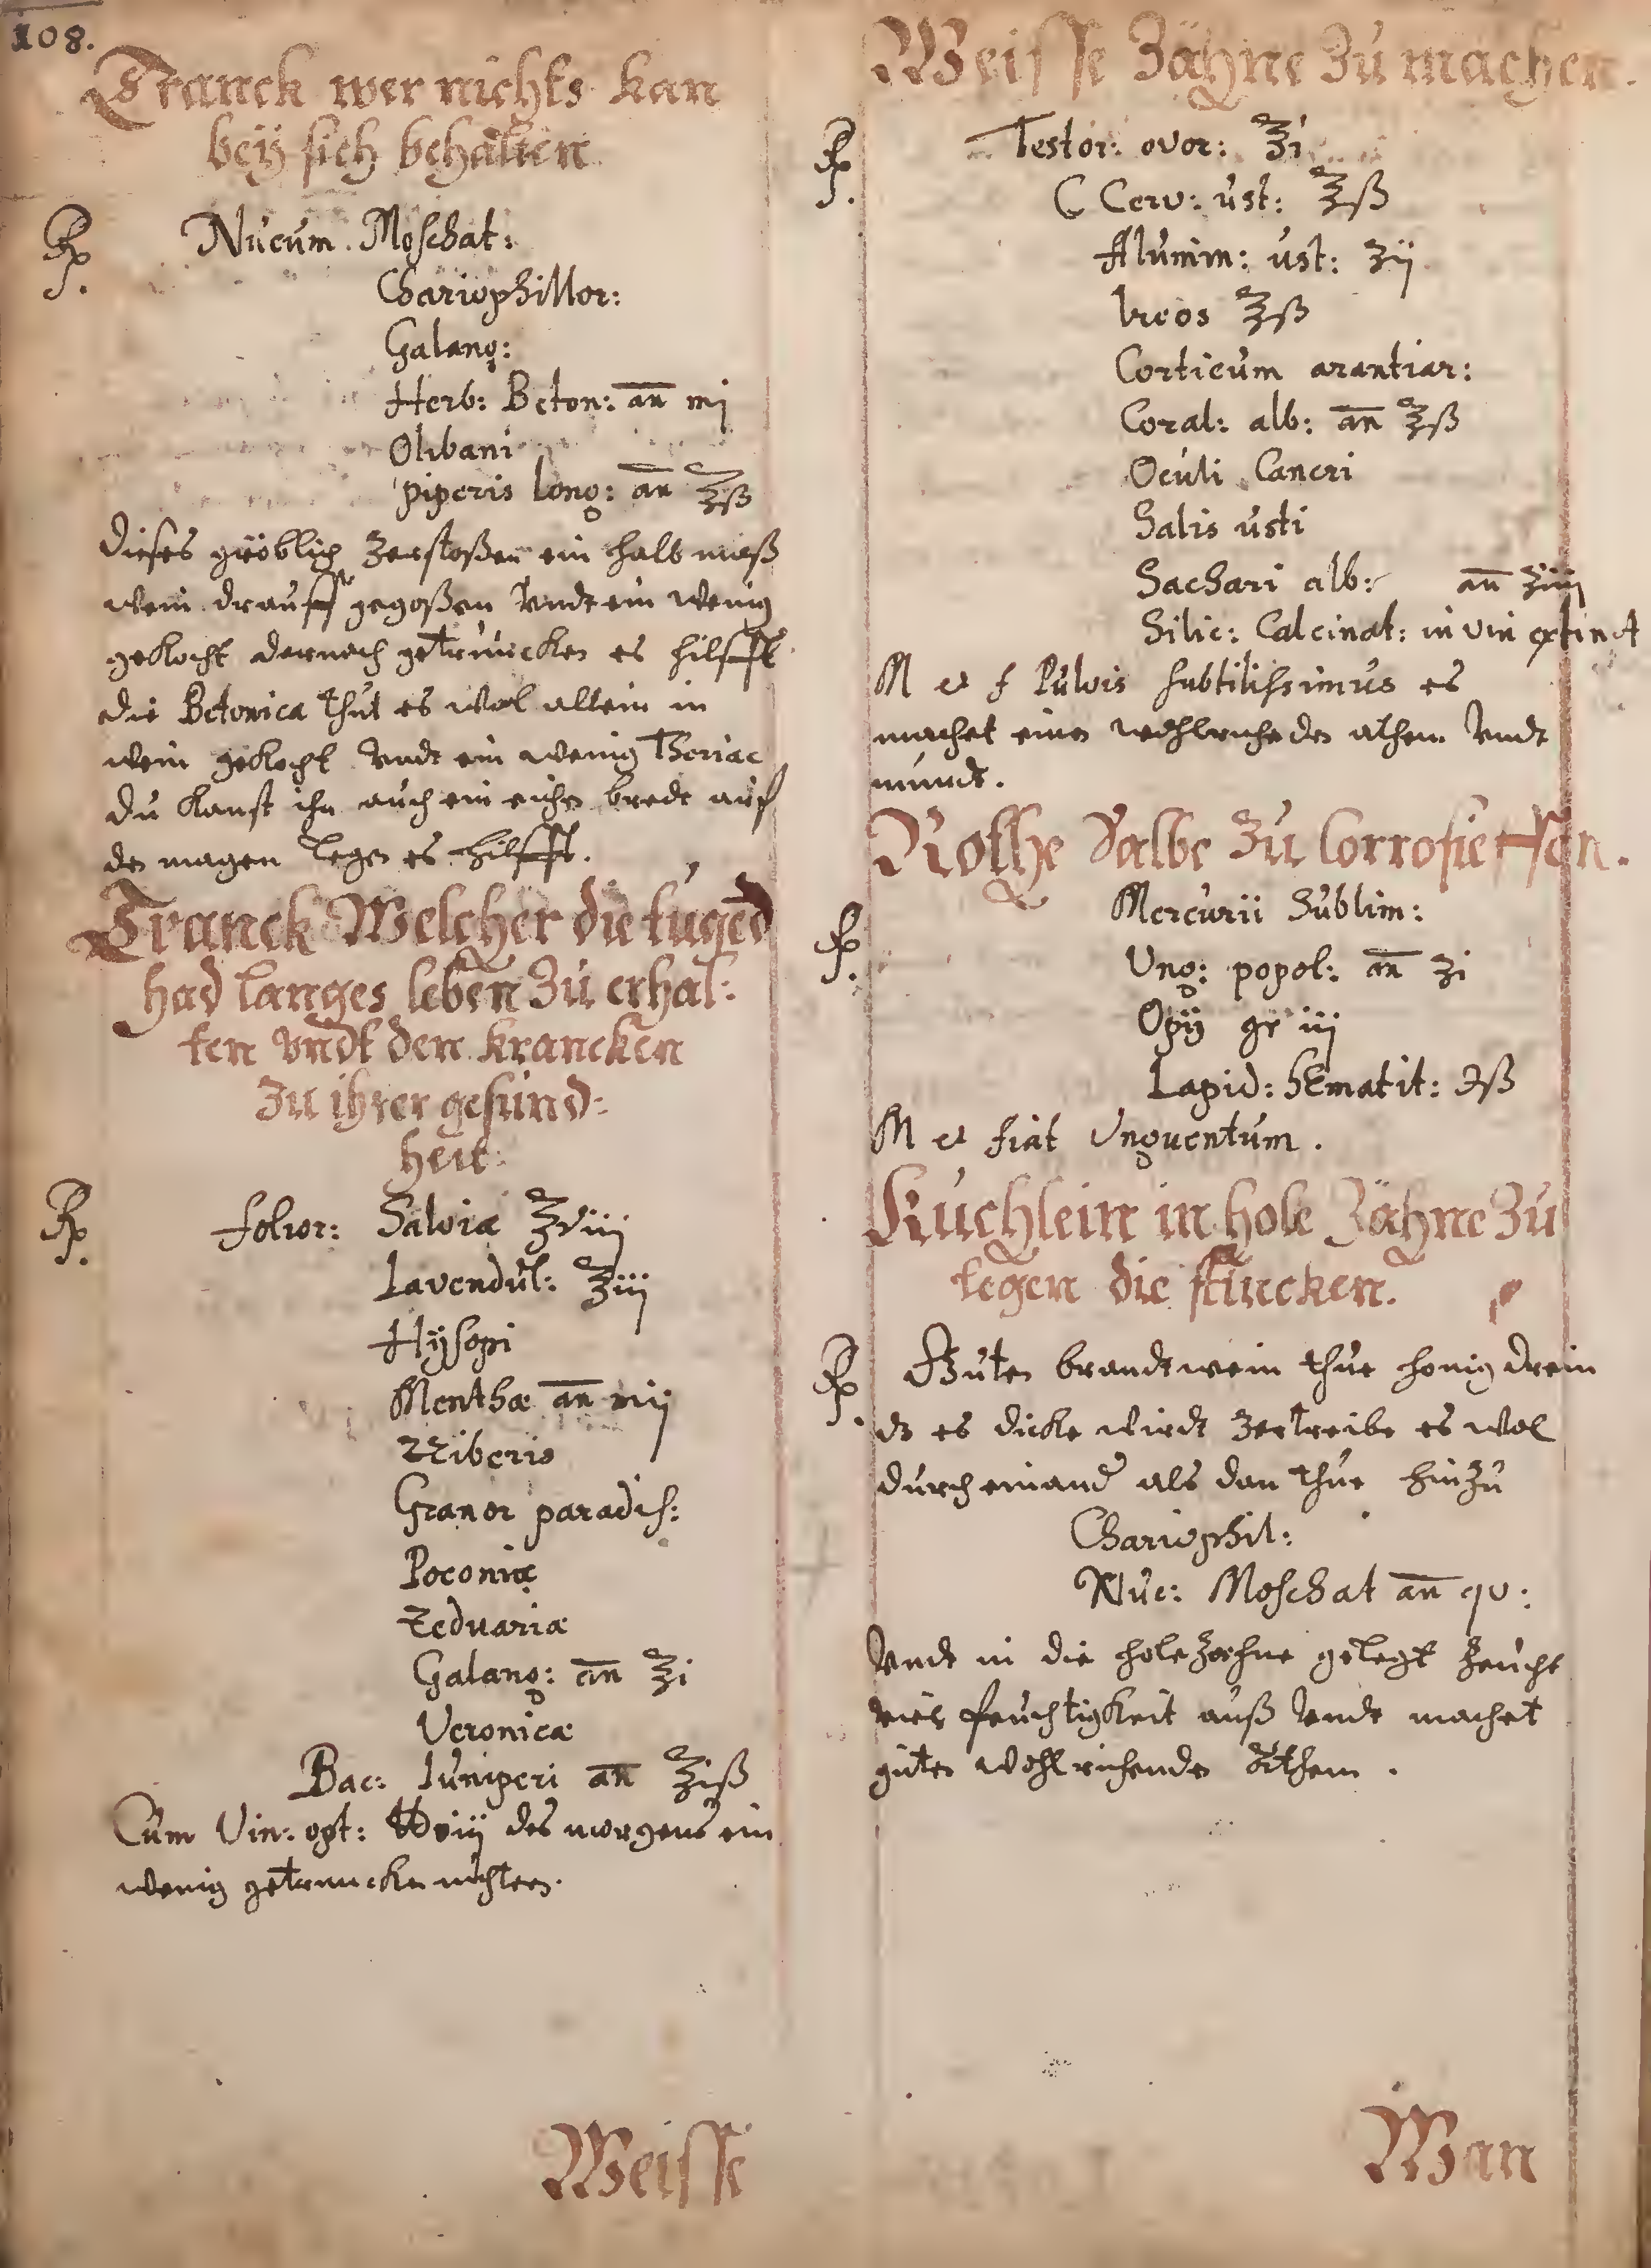 108.
Tranck wer nichts kan
beÿ sich behalten
Rp.
Nucum Moschat:
Chariophillor:
Galang:
Herb: Beton: an̄ mj
Olibani
piperis long: an̄ ℥ß
dieses gröblich zerstoßen ein halb maß
wein drauff gegoßen Vndt ein wenig
gekocht darnach getruncken es hilfft
die Betonica thut es wol allein in
wein gekocht Vndt ein wenig Theriac
du kanst ihn auch ein eichen bredt auf
den magen legen es hilfft.
Tranck Welcher die tugēd
had langes leben zu erhal:
ten vndt den krancken
zu ihrer gesund:
heit:
Rp.
folior: Salviæ ℥viij
Lavendul: ℥iij
Hÿsopi
Menthæ an̄ mij
Ziberis
Granor paradis:
Poeoniæ
Zeduariæ
Galang: an̄ ℥i
Veronicæ
Bac: Iuniperi an̄ ℥iß
Cum Vin: opt: des morgens ein
wenig getruncken nüchtern.
Weisse
Weisse Zähne zu machen.
Rp.
Testor: ovor: ℥i
C Cerv: ust: ℥ß
Alumin: ust: ʒij
Ireos ℥ß
Corticum arantiar:
Coral: alb: an̄ ℥ß
Oculi Cancri
Salis usti
Sachari alb: an̄ ʒiij
Silic: Calcinat: in vin extinct
M et f Pulvis subtilissimus es
machet einen wohlrichenden athem Vndt
mundt.
Rothe Salbe zu Corrosieffen.
Rp.
Mercurii Sublim:
Ung: popol: an̄ ʒi
Opÿ gr iij
Lapid: hEmatit: ℈ß
M et fiat Unguentum.
Kuchlein in hole Zähne zu
legen die stincken.
Rp.
Guten brandtwein thue honig drein
dz es dicke wirdt zertreibe es wol
durch einand als dan thue hinzu
Chariophil:
Nuc: Moschat an̄ qv:
Vndt in die hole zaehne gelegt zeucht
viel feuchtigkeit auß Vndt machet
guten wohlrichenden Athem.
Man